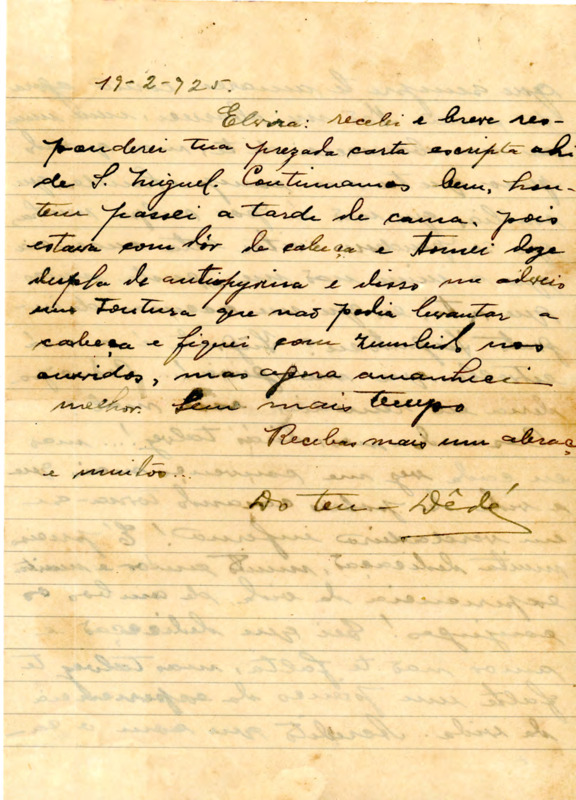 19-2-925.
Elvira: recebi e breve res-
ponderei tua prezada carta escripta ahi
de S. Miguel. Continuamos bem, hon-
tem passei a tarde de cama, pois
estava com dôr de cabeça e tomei doze
dupla de antipyrina e disso me adveio
uma tontura que não podia levantar a
cabeça e fiquei com zumbido nos
ouvidos, mas agora amanheci
melhor. Sem mais tempo
Recebas mais um abraç
e muitos...
Do teu - Dêdé